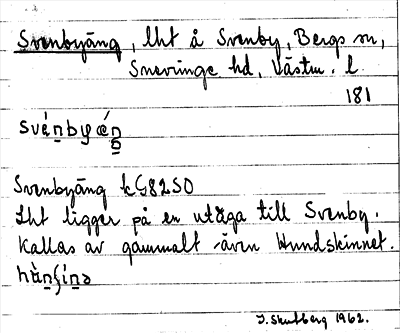 Svenbyäng, lht å Svenby, Bergs sn,
Snevringe hd, Västm. l.
181
svén̲by ǽn̲
Svenbyäng k G8250
Lht ligger på en utäga till Svenby.
Kallas av gammalt även Hundskinnet.
J. Stenberg 1962.